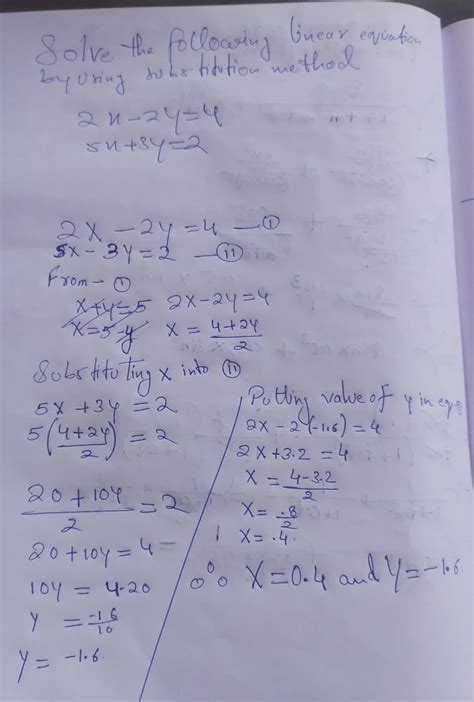 Solve the following linear equation
by using substitution method
2x-2y=4
5x+3y=2
2x-2y=4 — ①
5x-3y=2 — ⑪
From - ①
x+y=5 2x-2y=4
x=5-y x = (4+2y)/2
Substituting x into ⑪
5x+3y=2
5((4+2y)/2) = 2
(20+10y)/2 = 2
20+10y=4
10y = 4-20
y = -16/10
y = -1.6
Putting value of y in eq
2x-2(-1.6)=4
2x+3.2=4
x = (4-3.2)/2
x = .8/2
x = .4
x=0.4 and y=-1.6